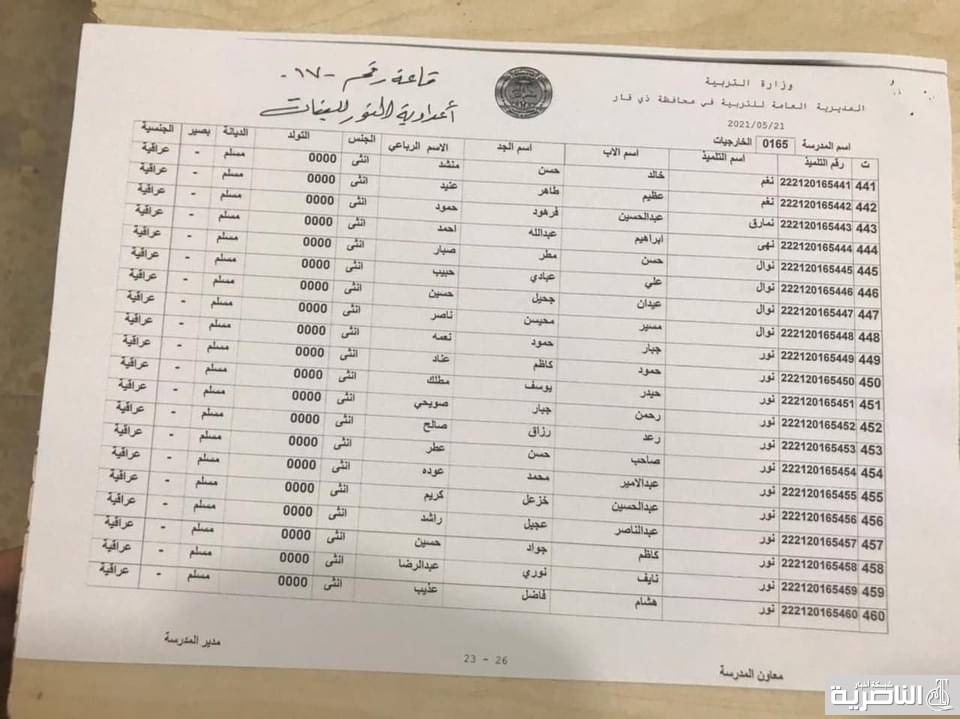 قاعة رقم -١٧-
أعدادية النور للبنات
وزارة التربية
المديرية العامة للتربية في محافظة ذي قار
2021/05/21
اسم المدرسة 0165 الخارجيات
ت رقم التلميذ اسم التلميذ اسم الاب اسم الجد الاسم الرباعي الجنس التولد الديانة بصير الجنسية
441 222120165441 نغم خالد حسن منشد انثى 0000 مسلم - عراقية
442 222120165442 نغم عظيم طاهر عنيد انثى 0000 مسلم - عراقية
443 222120165443 نمارق عبدالحسين فرهود حمود انثى 0000 مسلم - عراقية
444 222120165444 نهى ابراهيم عبدالله احمد انثى 0000 مسلم - عراقية
445 222120165445 نوال حسن مطر صبار انثى 0000 مسلم - عراقية
446 222120165446 نوال علي عبادي حبيب انثى 0000 مسلم - عراقية
447 222120165447 نوال عيدان جحيل حسين انثى 0000 مسلم - عراقية
448 222120165448 نوال مسير محيسن ناصر انثى 0000 مسلم - عراقية
449 222120165449 نور جبار حمود نعمه انثى 0000 مسلم - عراقية
450 222120165450 نور حمود كاظم عناد انثى 0000 مسلم - عراقية
451 222120165451 نور حيدر يوسف مطلك انثى 0000 مسلم - عراقية
452 222120165452 نور رحمن جبار صويحي انثى 0000 مسلم - عراقية
453 222120165453 نور رعد رزاق صالح انثى 0000 مسلم - عراقية
454 222120165454 نور صاحب حسن عطر انثى 0000 مسلم - عراقية
455 222120165455 نور عبدالامير محمد عوده انثى 0000 مسلم - عراقية
456 222120165456 نور عبدالحسين خزعل كريم انثى 0000 مسلم - عراقية
457 222120165457 نور عبدالناصر عجيل راشد انثى 0000 مسلم - عراقية
458 222120165458 نور كاظم جواد حسين انثى 0000 مسلم - عراقية
459 222120165459 نور نايف نوري عبدالرضا انثى 0000 مسلم - عراقية
460 222120165460 نور هشام فاضل عذيب انثى 0000 مسلم - عراقية
معاون المدرسة
23 - 26
مدير المدرسة
شبكة أخبار
الناصرية